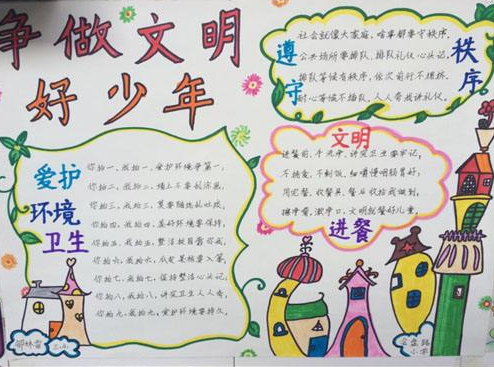 争做文明
好少年
遵守
秩序
社会就像大家庭,啥事都要守秩序。
公共场所要排队,排队礼仪心头记。
排队等候有秩序,依次前行不拥挤。
耐心等候不插队,人人夸我讲礼仪。
爱护
环境
卫生
你拍一,我拍一,爱护环境争第一。
你拍二,我拍二,墙上不要乱涂画。
你拍三,我拍三,莫要随地乱吐痰。
你拍四,我拍四,美好环境要保持。
你拍五,我拍五,整洁就自
你拍六,我拍六,瓜皮果核要入篓。
你拍七,我拍七,保持整洁心头记。
你拍八,我拍八,讲究卫生人人夸。
你拍九,我拍九,爱护环境要持久。
文明
进餐
进餐前,手洗净,讲究卫生要牢记。
不挑食,不剩饭,细嚼慢咽肠胃好。
用完餐,收餐具,餐后收拾我做到。
擦字嘴,漱字口,文明就餐好儿童。
路
小学